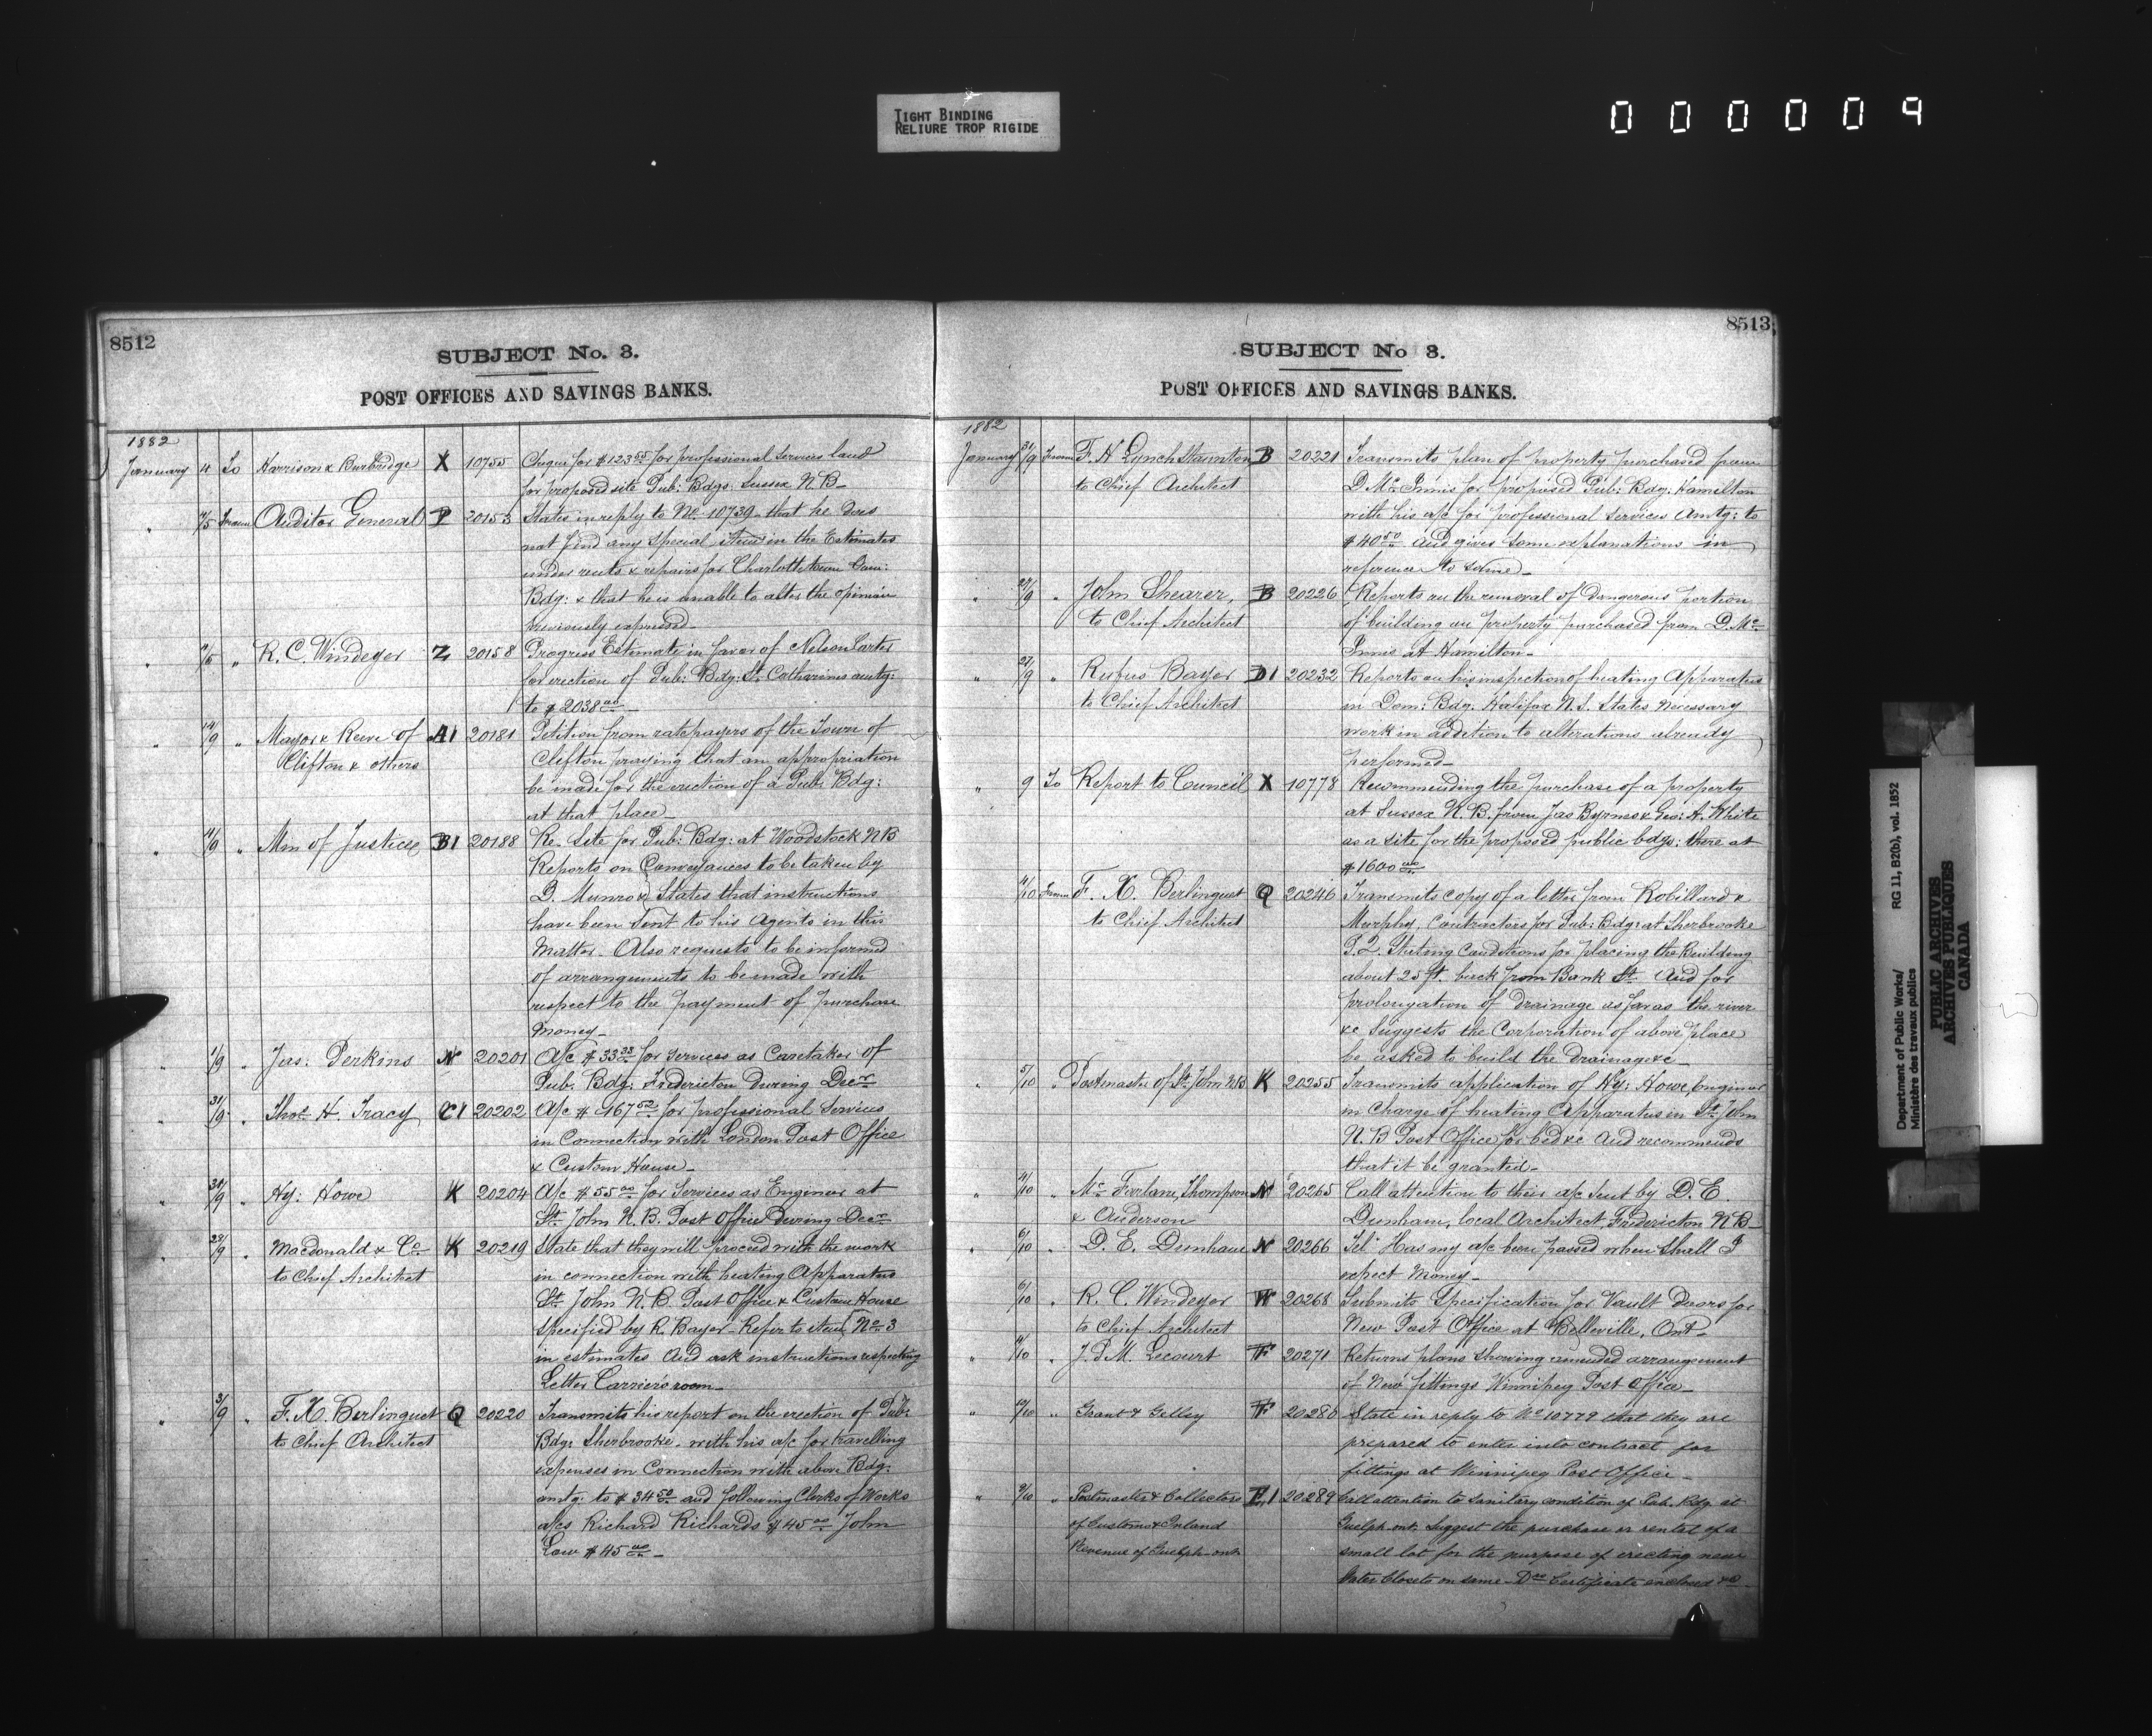 TIGHT BINDING
RELIURE TROP RIGIDE
000009
8512
SUBJECT No. 3.
POST OFFICES AND SAVINGS BANKS.
1882
January 4 To Harrison & Burbridge X 10755 Cheque for $123 for professional services land
for proposed site Pub: Bdgs: Sussex N.B-
" 4/5 From Auditor General P 20153 States in reply to No 10739 that he does
not find any special item in the Estimates
under rents & repairs for Charlottetown Dom:
Bdg: & that he is unable to alter the opinion
previously expressed-
" /5 " R. C. Windeyer Z 20158 Progress Estimate in favor of Nelson Carter
for erection of Pub: Bdg: St. Catharines amtg:
to $2038 00
" 14/9 " Mayor & Reeve of A1 20181 Petition from ratepayers of the Town of
Clifton & others Clifton praying that an appropriation
be made for the erection of a Pub: Bdg:
at that place
" /9 " Min of Justice B1 20188 Re. Site for Pub: Bdg: at Woodstock NB
Reports on Conveyances to be taken by
D. Munro & States that instructions
have been sent to his agents in this
matter. Also requests to be informed
of arrangements to be made with
respect to the payment of purchase
money-
" 1/9 " Jas: Perkins N 20201 A/c $33 33 for services as Caretaker of
Pub: Bdg: Fredericton during Decr
" 31/9 " Thos. H. Tracy C1 20202 A/c $ 167 52 for professional services
in Connection with London Post Office
& Custom House-
" 30/9 " Hy: Howe K 20204 A/c $55 00 for services as Engineer at
St. John N.B. Post Office During Decr
" 28/9 " Macdonald & Co K 20219 State that they will proceed with the work
to Chief Architect in connection with heating Apparatus
St. John N.B. Post Office & Custom House
specified by R. Bayer- Refer to item No 3
in estimates and ask instructions respecting
Letter Carriers room-
" 3/9 " F. X. Berlinguet Q 20220 Transmits his report on the erection of Pub:
to Chief Architect Bdg: Sherbrooke. with his a/c for travelling
expenses in Connection with above Bdg:
amtg. to $34 50 and following Clerks of Works
a/cs Richard Richards $45 00 John
Law $45 00-
8513
SUBJECT No 3.
POST OFFICES AND SAVINGS BANKS.
1882
January 31/9 From F. H. Lynch Staunton B 20221 Transmits plan of property purchased from
to Chief Architect D. McInnis for proposed Pub: Bdg: Hamilton
with his a/c for professional services amtg: to
$40 50 and gives some explanations in
reference to same-
" 27/9 " John Shearer, B 20226 Reports on the removal of dangerous portion
to Chief Architect of building on property purchased from D. Mc
Innis at Hamilton-
" 27/9 " Rufus Bayer D1 20232 Reports on his inspection of heating Apparatus
to Chief Architect in Dom: Bdg. Halifax N.S. States necessary
work in addition to alterations already
performed-
" 9 To Report to Council X 10778 Recommending the purchase of a property
at Sussex N.B. from Jas Byrnes & Geo: A. White
as a site for the proposed public bdgs: there at
$1600 00
4/10 From F. X. Berlinguet Q 20246 Transmits copy of a letter from Robillard &
to Chief Architect Murphy, Contractors for Pub: Bdg: at Sherbrooke
P.Q. Stating Conditions for placing the Building
about 25 ft. back from Bank St. and for
prolongation of drainage as far as the river
&c Suggests the Corporation of above place
be asked to build the drainage &c-
" 5/10 " Postmaster of St. John N.B K 20255 Transmits application of Hy: Howe, Engineer
in Charge of heating Apparatus in St. John
N.B Post Office for bed &c and recommends
that it be granted-
" 4/10 " McFarlane, Thompson N 20265 Call attention to their a/c sent by D. E.
& Anderson Dunham, local Architect, Fredericton N.B-
" 6/10 " D. E. Dunham N 20266 Tel: Has my a/c been passed when shall I
expect money-
6/10 " R. C. Windeyer W 20268 Submits Specification for Vault doors for
to Chief Architect New Post Office at Belleville, Ont-
" 4/10 " J. P. M. Lecourt F 20271 Returns plans showing amended arrangement
of New fittings Winnipeg Post Office-
" /10 " Grant & Gelley F 20280 State in reply to No 10779 that they are
prepared to enter into contract for
fittings at Winnipeg Post Office-
" 9/10 " Postmaster & Collectors E1 20289 Call attention to sanitary condition of Pub. Bdg at
of Customs & Inland Guelph ont. Suggest the purchase or rental of a
Revenue of Guelph ont small lot for the purpose of erecting new
Water Closets on same- Certificate enclosed
Department of Public Works/ RG 11, B2(b), vol. 1852
Ministère des travaux publics
PUBLIC ARCHIVES
ARCHIVES PUBLIQUES
CANADA